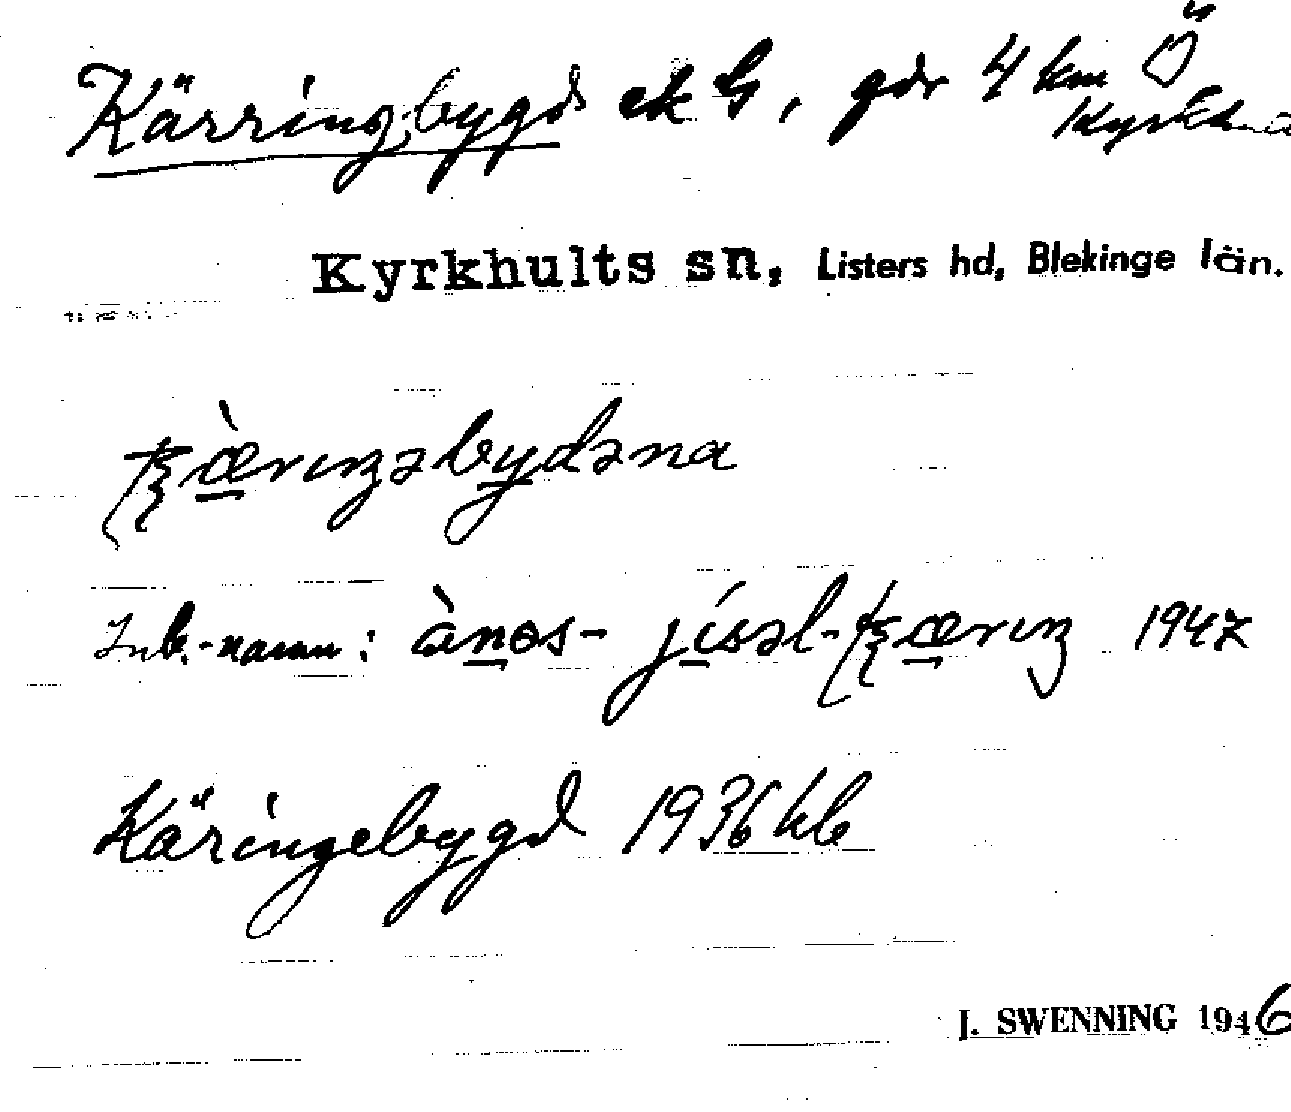 Kärringbygd ek G, gdr 4 km Ö
Kyrkh-a
Kyrkhults sn, Listers hd, Blekinge län.
ərıŋəbydəna
Inb.-namn: jisəl- 1947
Käringebygd 1936 kb
J. SWENNING 1946